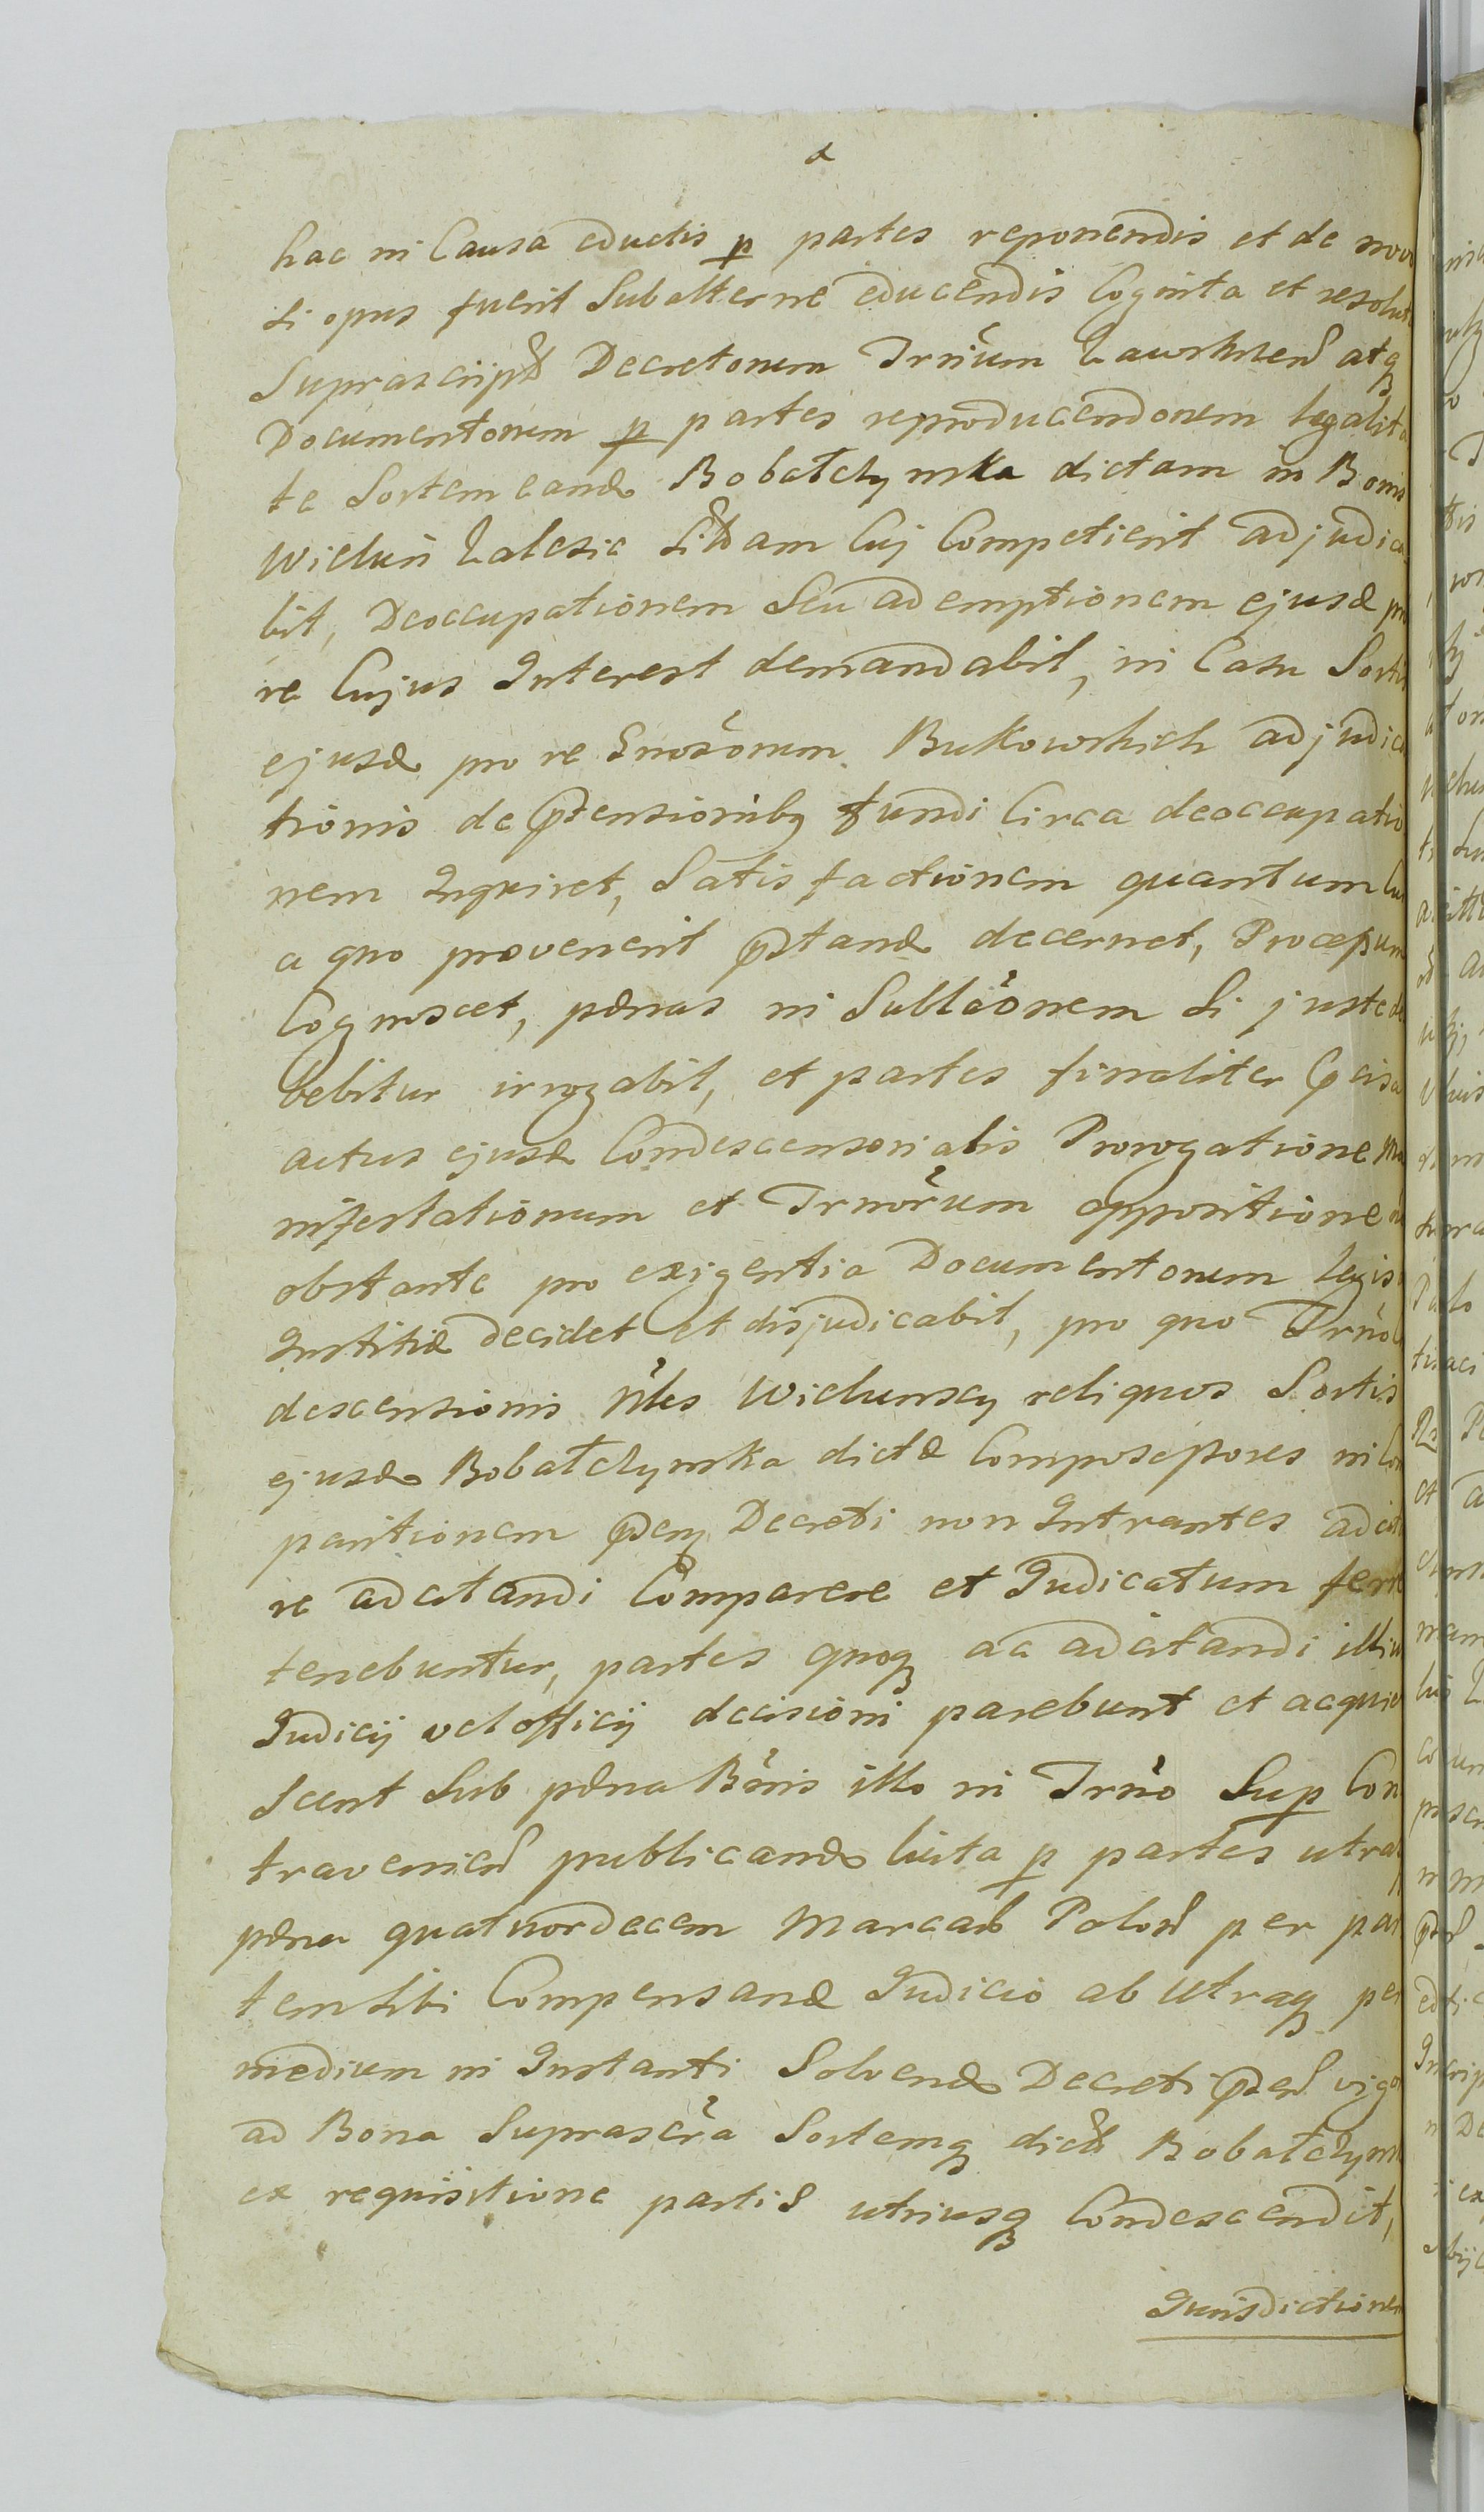 hac in Causa eductis p partes reponendis et de novo
si opus fuerit Subalterne educendis Cognita et resolut
Suprascript Decretorum Trnium atq
Documentorum p partes reproducendorum legalita
te Sortem eand Bobatczynska dictam in Bonis
Wielun Zalesie sitam Cuj Competierit adjudica
bit, Deoccupationem Seu ademptionem ejusd pro
re Cujus Interest demandabit, in Casu Sortis
ejusd pro re Gnosorum Bukowskich adjudica
tionis de ptensionibq fundi Circa deoccupatio
nem Inquiret, Satisfactionem quantum Cui
a quo provenerit pstand decernet, Processum
Cognoscet, pænas in Sublaonem si juste de
bebitur irrogabit, et partes finaliter
actus ejusd Condescensorialis Prorogatione Ma
nifestationum et Trnorum oppositione
obstante pro exigentia Documentorum legis
Justitiæ decidet et disjudicabit, pro quo Trno
descensionis Nles Wielunscy reliquos Sortis
ejusd Bobatczynska dictæ Compossessores in Com
paritionem Decreti non Intrantes adcita
re adcitandi Comparere et Judicatum ferre
tenebuntur, partes quoq ac adcitandi illius
Judicij vel officij decisioni parebunt et acquie
scent Sub pæna Bnnis illo in Trno Sup Con
travenien publicand luita p partes utras
pæna quatuordecem Marcar Polon per par
tem sibi Compensand Judicio ab utraq per
medium in Instanti Solvend Decreti vigo
ad Bona Suprascra Sortemq dict Bobatczyns
ex requisitione partis utriusq Condescendit,
Jurisdictionem